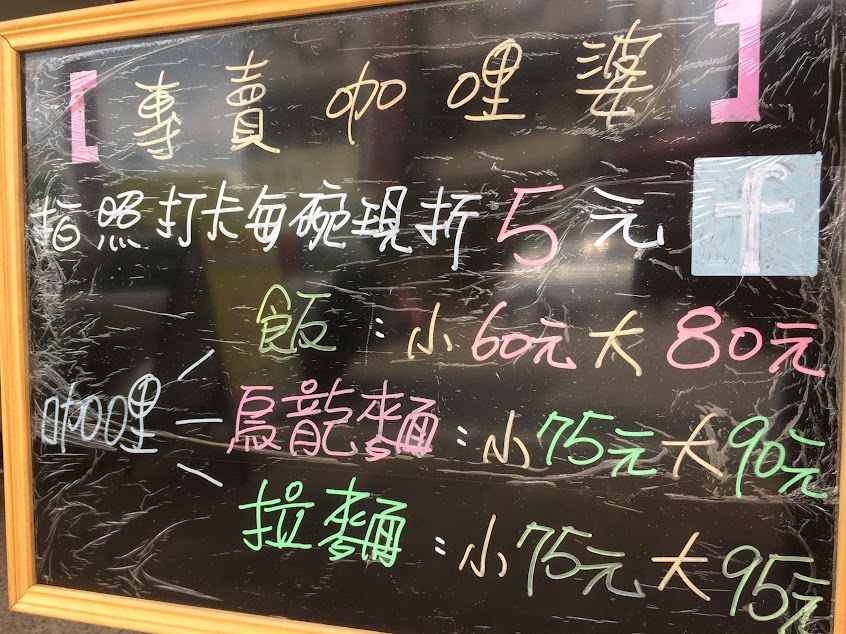 [專賣咖哩婆]
拍照打卡每碗現折5元 f
飯：小60元大80元
咖哩 烏龍麵：小75元大90元
拉麵：小75元大95元